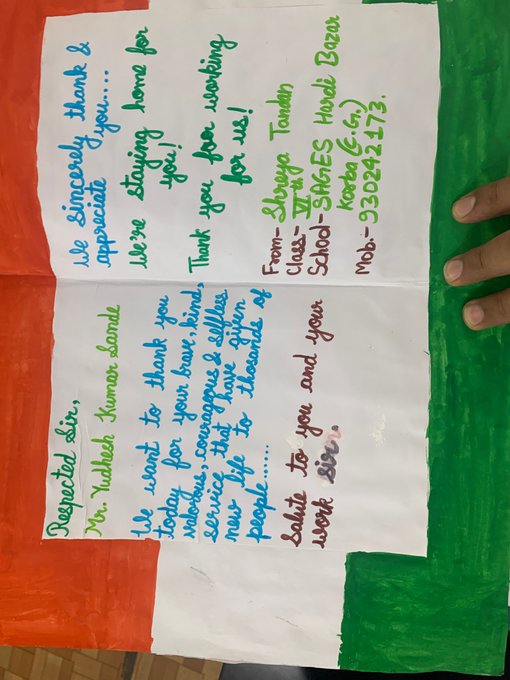 Respected Sir,
Mr. Yudhesh Kumar Samde
We want to thank you
today for your brave, kind,
valorous, courageous & selfless
service that have given
new life to thosands of
people......
Salute to you and your
work sir.
We sincerely thank &
appreciate you....
We're staying home for
you!
Thank you for working
for us!
From- Shreya Tandan
Class- VIth
School- SAGES Hardi Bazar
Korba (C.G.)
Mob:- 930242173.